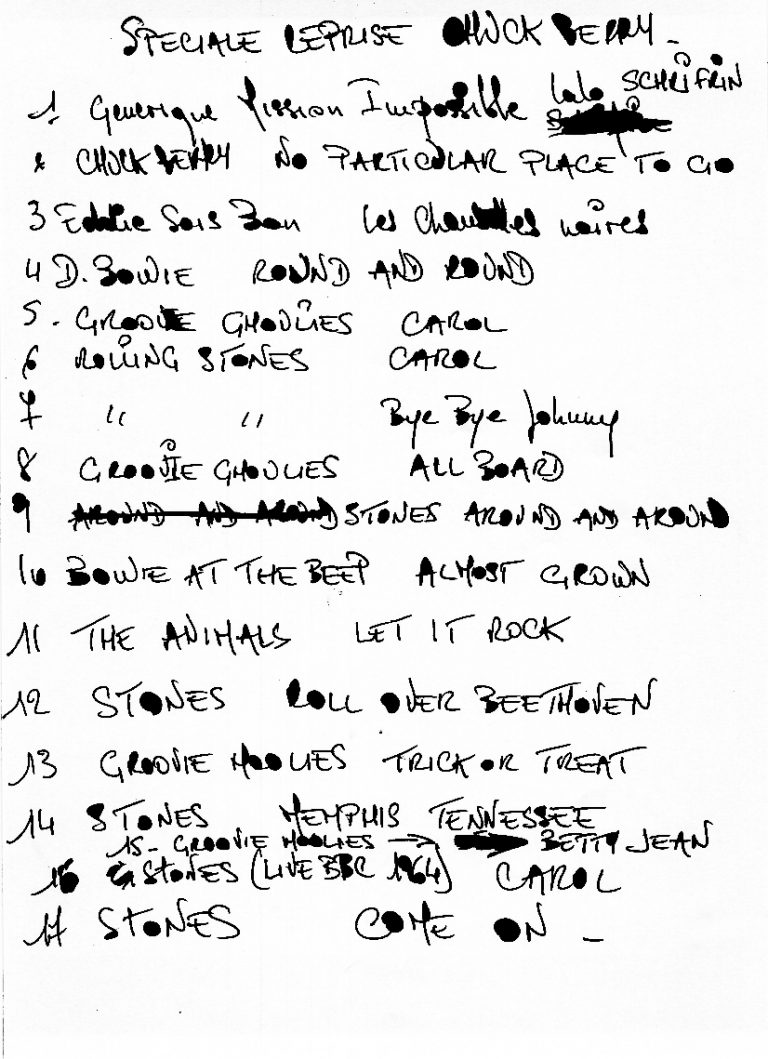 SPECIALE REPRISE CHUCK BERRY -
1 Generique Mission Impossible Lalo SCHRIFRIN
2 CHUCK BERRY NO PARTICULAR PLACE TO GO
3 Eddie Sois Bon Les Chaussettes noires
4 D. BOWIE ROUND AND ROUND
5. GROOVIE GHOULIES CAROL
6 ROLLING STONES CAROL
7 " " Bye Bye Johnny
8 GROOVIE GHOULIES ALL BOARD
9 AROUND AND AROUND STONES AROUND AND AROUND
10 BOWIE AT THE BEEP ALMOST GROWN
11 THE ANIMALS LET IT ROCK
12 STONES ROLL OVER BEETHOVEN
13 GROOVIE HOOLIES TRICK OR TREAT
14 STONES MEMPHIS TENNESSEE
15- GROOVIE HOOLIES → BETTY JEAN
16 STONES (LIVE BBC 1964) CAROL
17 STONES COME ON -